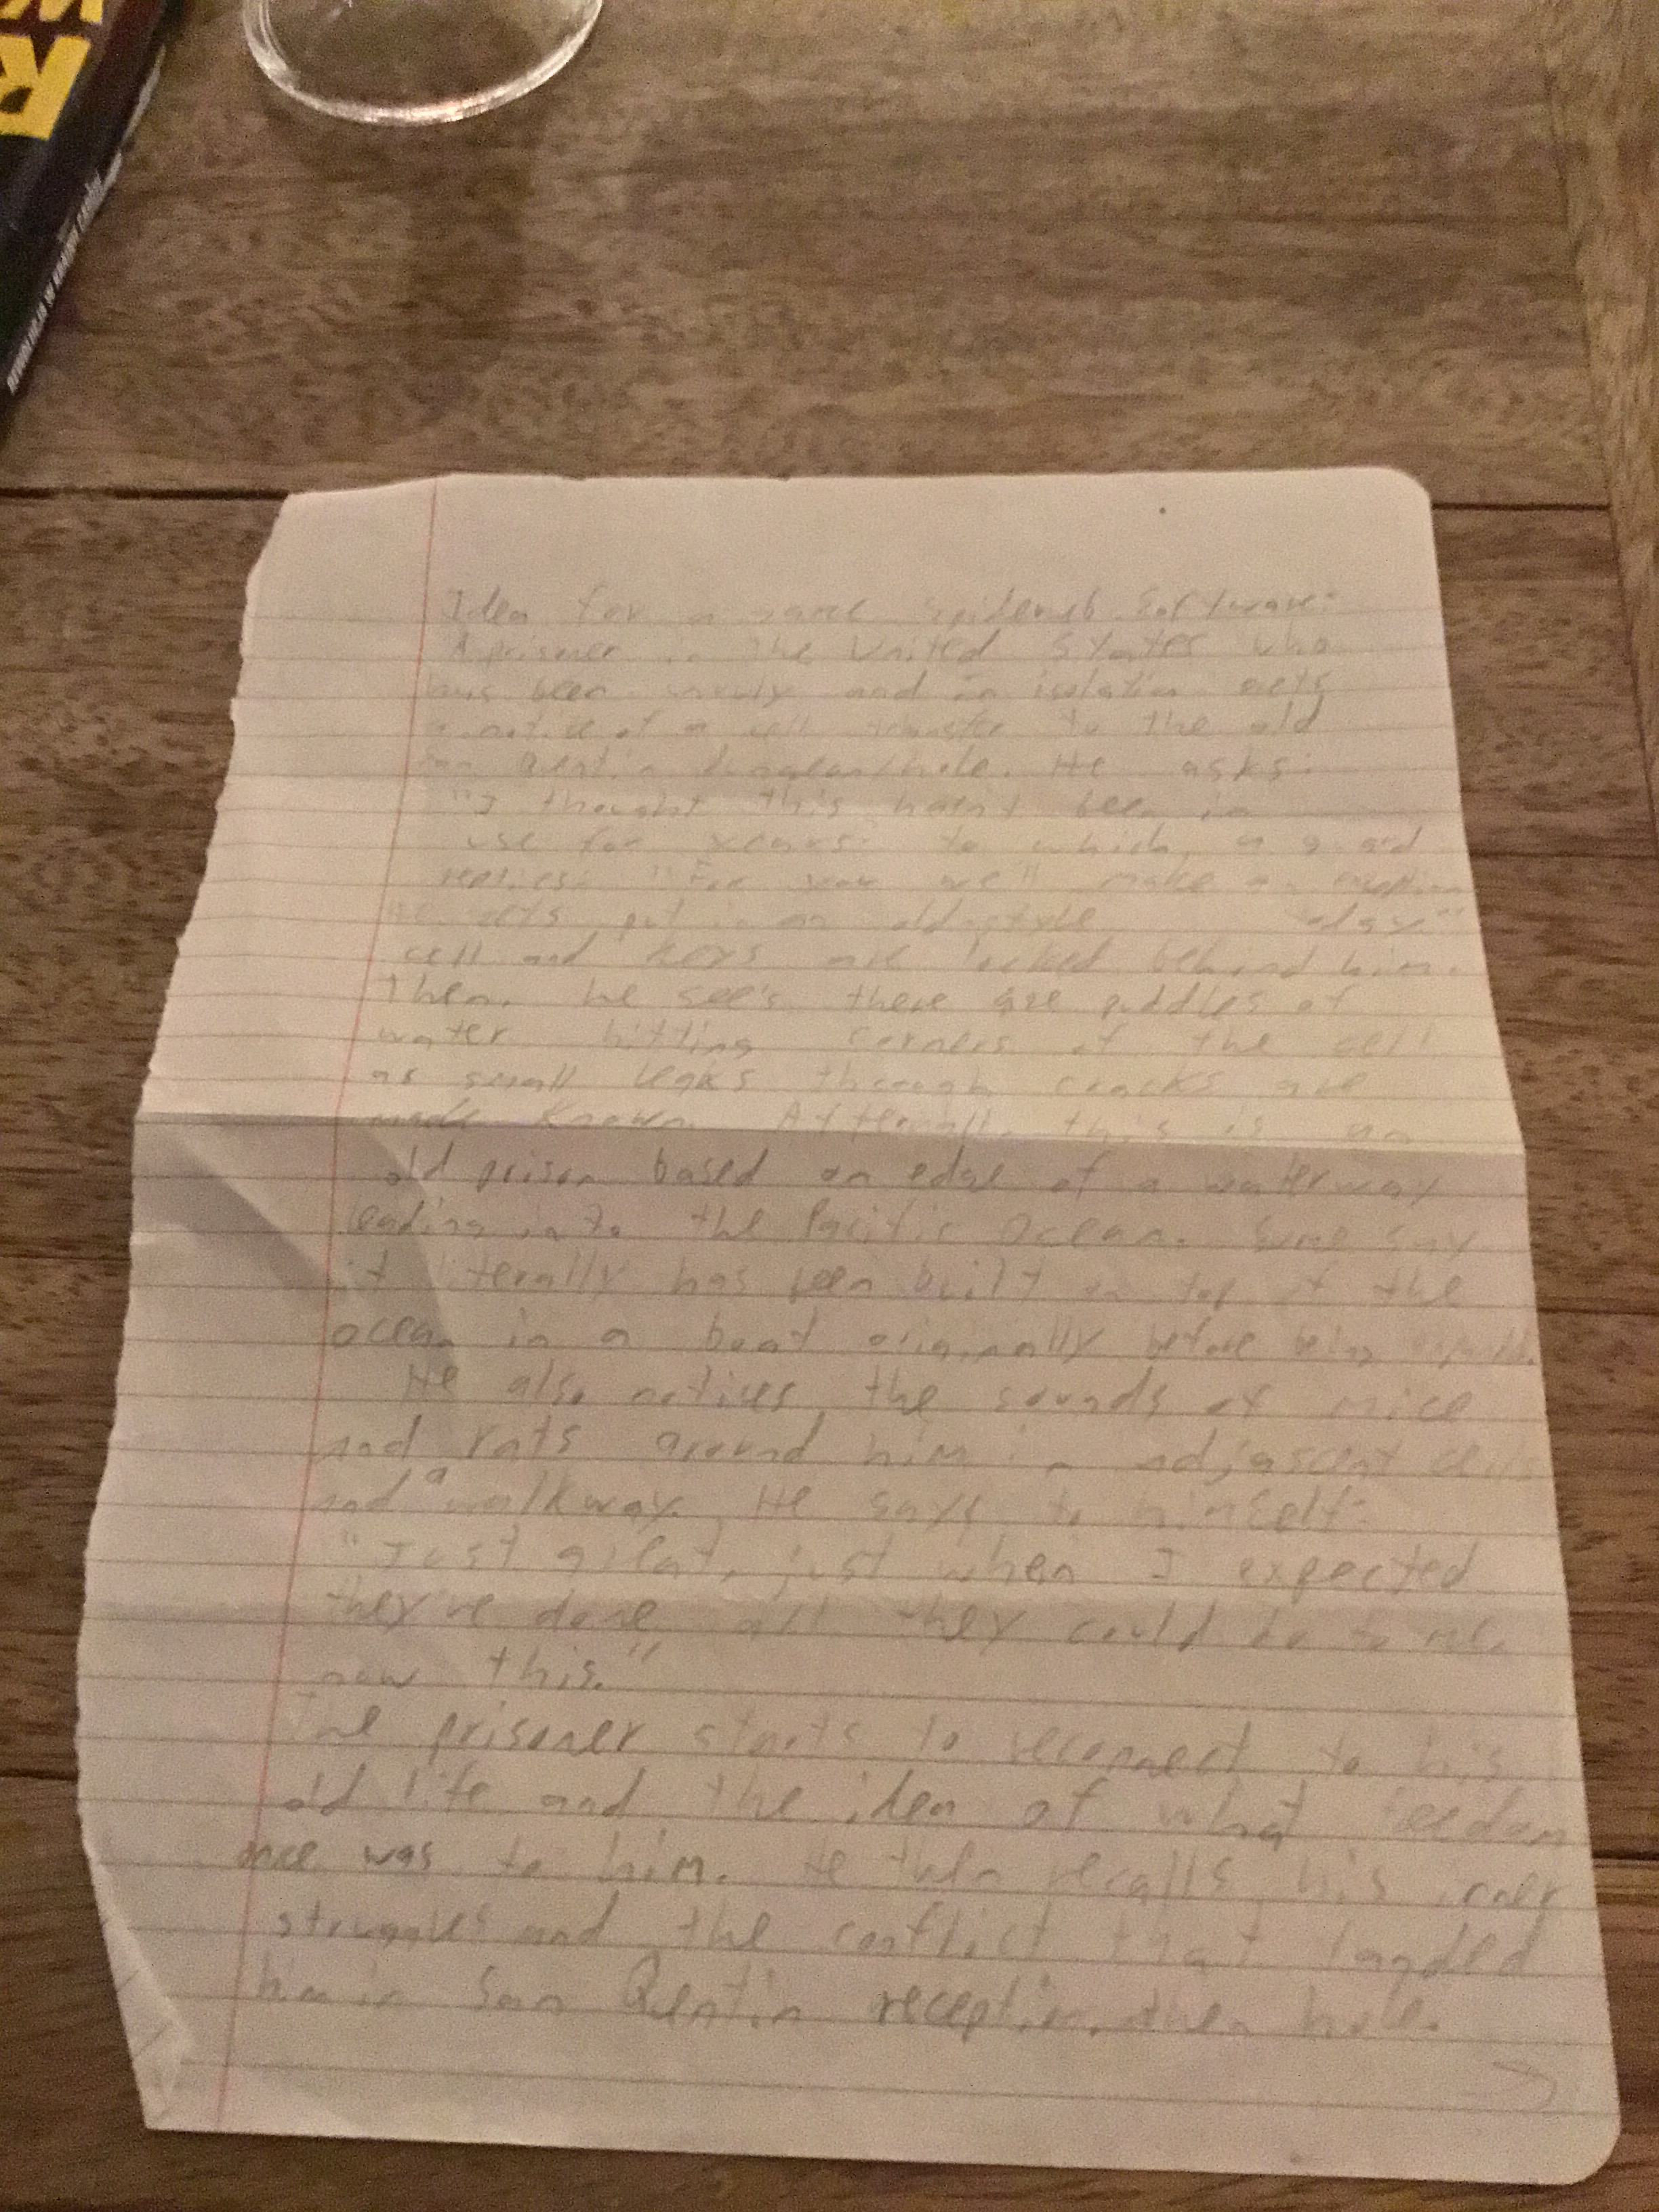 R
W
Idea for a game Software:
A prisoner in the United States who
has been unruly and in isolation gets
a notice of a cell transfer to the old
San Quentin Dungeon/hole. He asks:
"I thought this hasn't been in
use for years" to which, a guard
replies: "For you we'll make an exception
He gets put in an old-style
cell and keys are locked behind him.
Then, he see's there are puddles of
water hitting corners of the cell
as small leaks through cracks are
made known. Afterall, this is an
old prison based on edge of a waterway
leading into the Pacific Ocean. Some say
it literally has been built on top of the
ocean in a boat originally before being
He also notices the sounds of mice
and rats around him in adjascent cells
and a walkway. He says to himself:
"Just great, just when I expected
they've done all they could do to me,
now this."
The prisoner starts to reconnect to his
old life and the idea of what feedom
once was to him. He then recalls his inner
struggles and the conflict that landed
him in San Quentin reception, then hole.